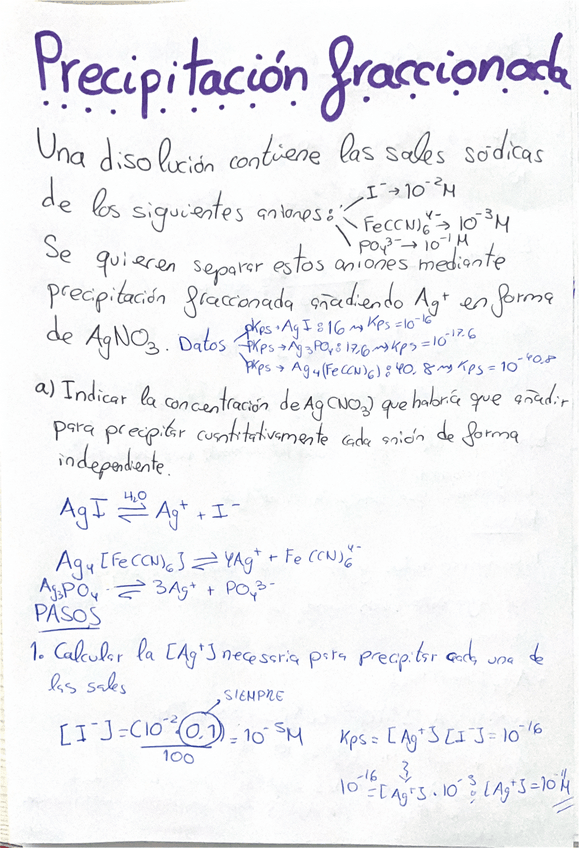 Precipitación fraccionada
Una disolución contiene las sales sódicas
de los siguientes aniones:
I⁻ → 10⁻² M
Fe(CN)₆⁴⁻ → 10⁻³ M
PO₄³⁻ → 10⁻¹ M
Se quieren separar estos aniones mediante
precipitación fraccionada añadiendo Ag⁺ en forma
de AgNO₃. Datos
pKps → AgI : 16 → Kps = 10⁻¹⁶
pKps → Ag₃PO₄ : 17,6 → Kps = 10⁻¹⁷·⁶
pKps → Ag₄(Fe(CN)₆) : 40,8 → Kps = 10⁻⁴⁰·⁸
a) Indicar la concentración de Ag(NO₃) que habría que añadir
para precipitar cuantitativamente cada anión de forma
independiente.
AgI ⇌ H₂O Ag⁺ + I⁻
Ag₄[Fe(CN)₆] ⇌ 4Ag⁺ + Fe(CN)₆⁴⁻
Ag₃PO₄ ⇌ 3Ag⁺ + PO₄³⁻
PASOS
1. Calcular la [Ag⁺] necesaria para precipitar cada una de
las sales
SIEMPRE
[I⁻] = (10⁻² · 0,1) / 100 = 10⁻⁵ M
Kps = [Ag⁺] [I⁻] = 10⁻¹⁶
?
10⁻¹⁶ = [Ag⁺] · 10⁻⁵ ; [Ag⁺] = 10⁻¹¹ M